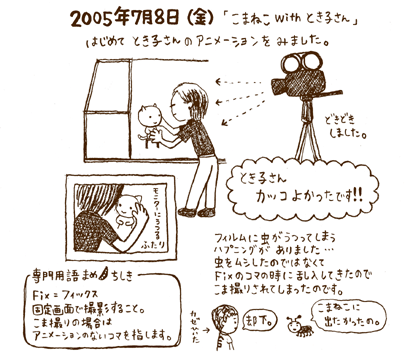 2005年7月8日(金)「こまねこ with とき子さん」
はじめて とき子さんのアニメーションをみました。
どきどき
しました。
とき子さん
カッコよかったです!!
モニタにうつる
ふたり
フィルムに虫がうつってしまう
ハプニングが ありました…
虫をムシしたのではなくて
Fixのコマの時に乱入してきたので
こま撮りされてしまったのです。
専門用語まめちしき
Fix=フィックス
固定画面で撮影すること。
こま撮りの場合は
アニメーションのないコマを指します。
却下。
こまねこに
出たかったの。